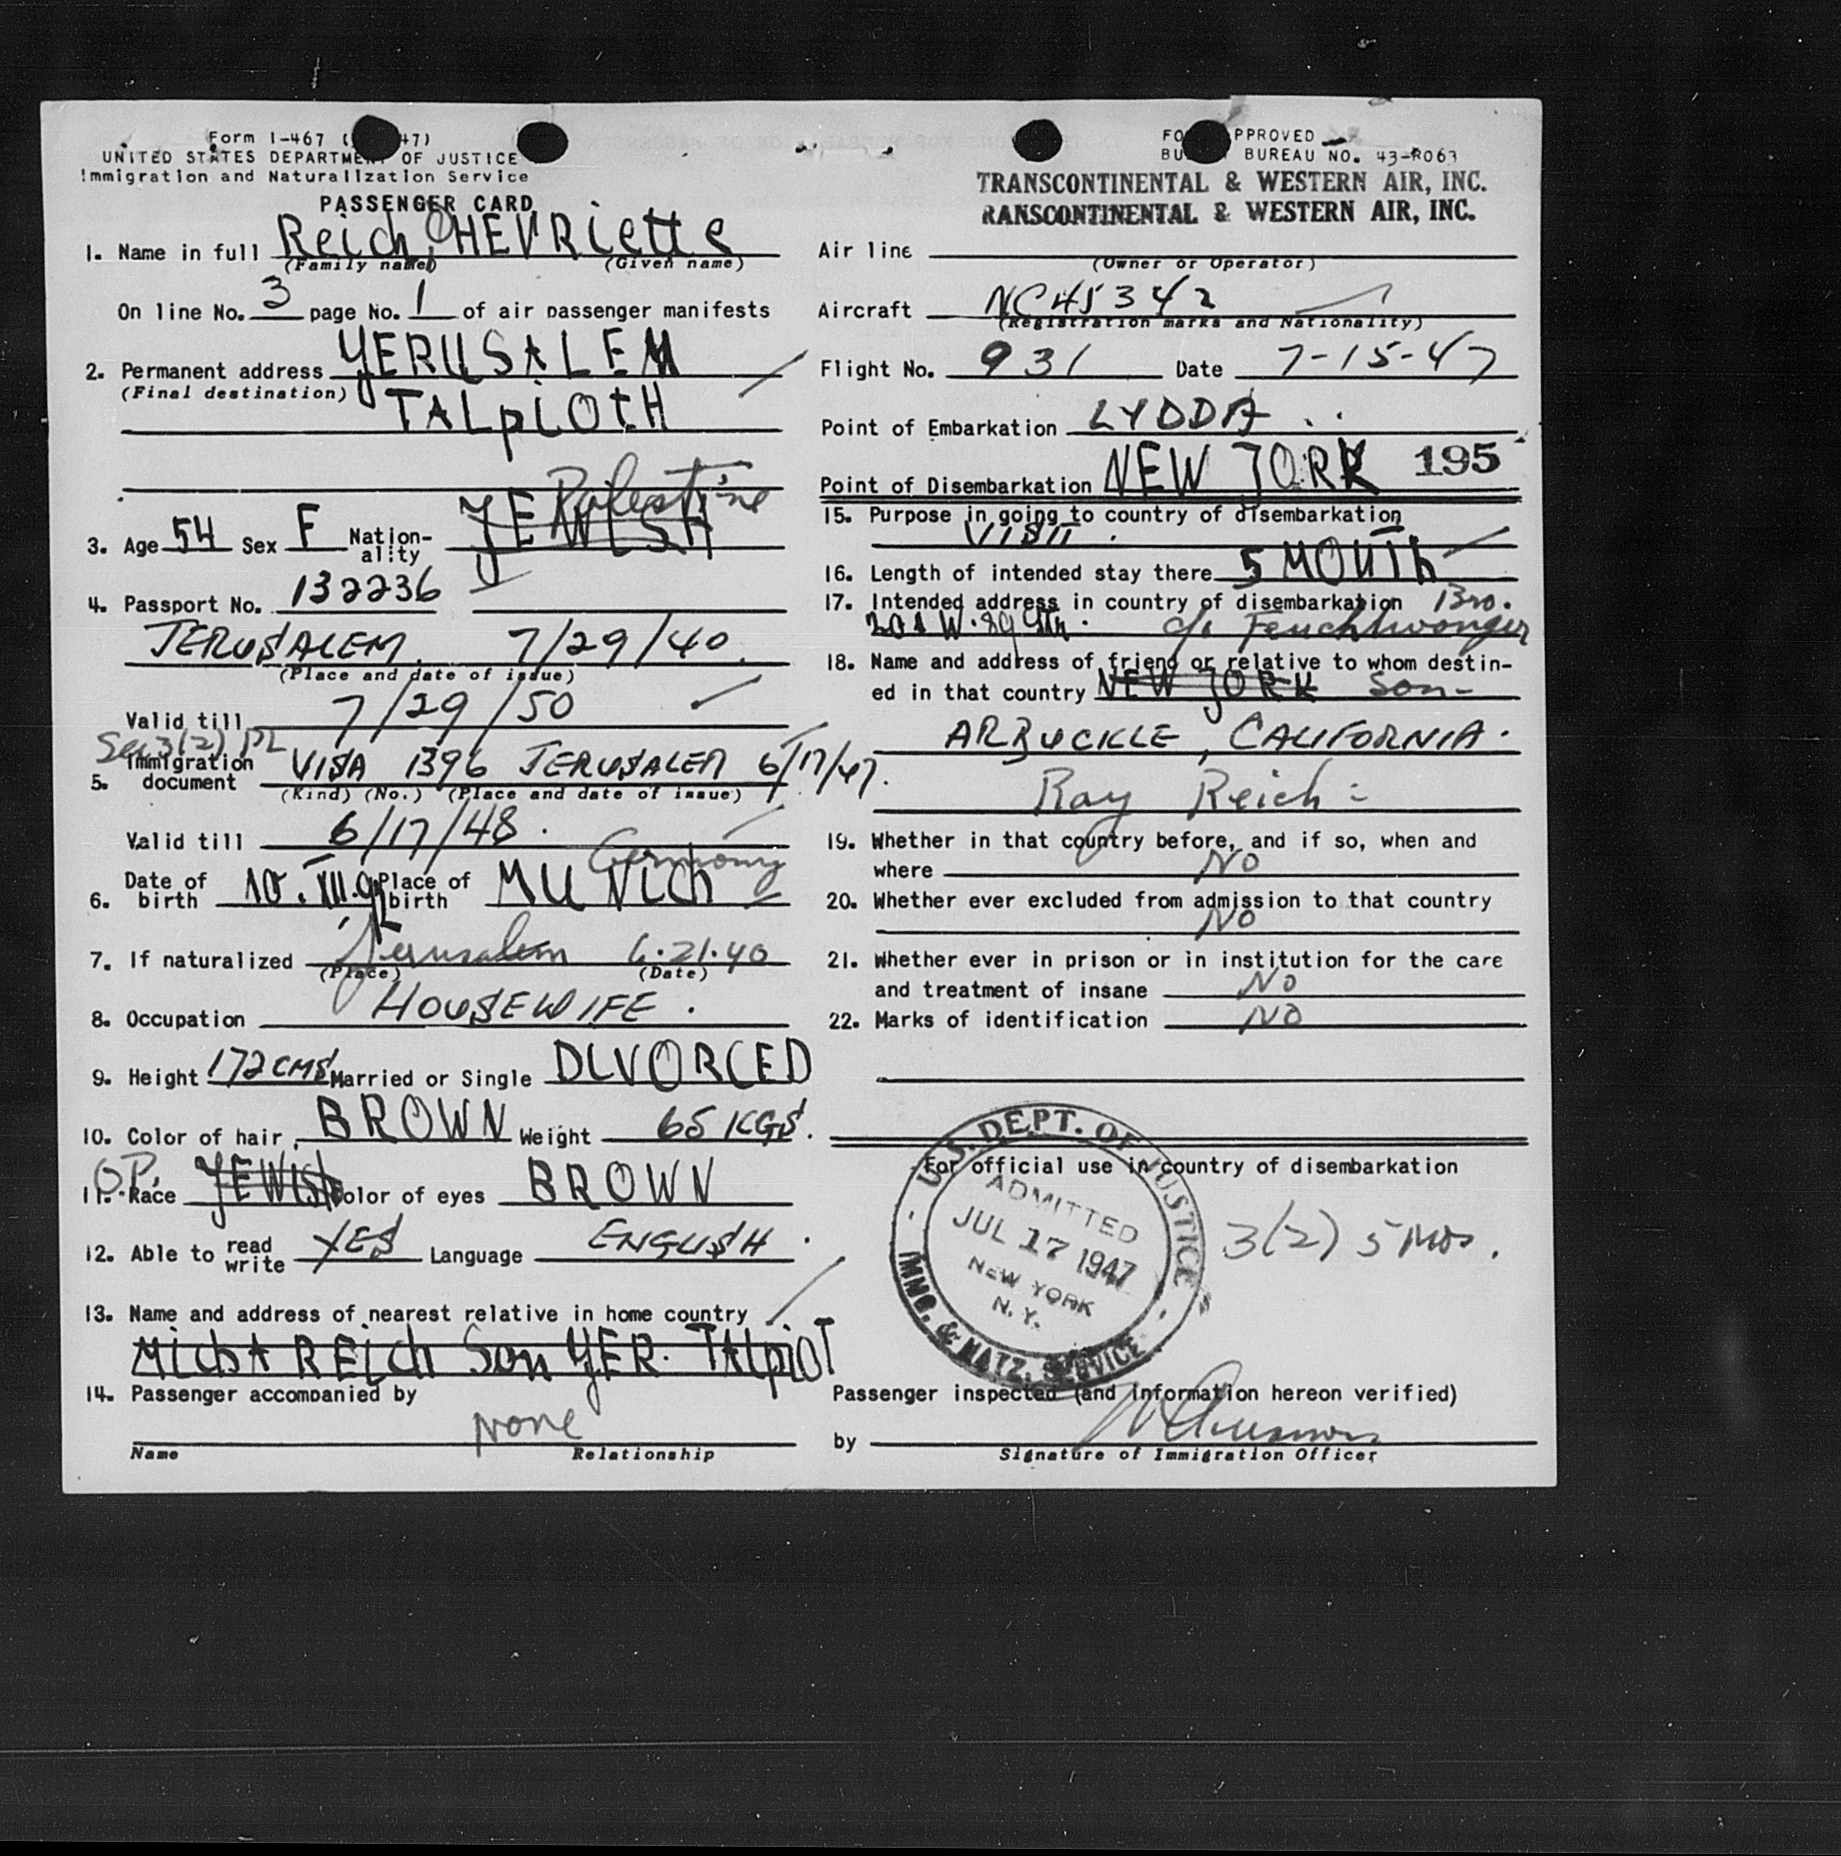 Form I-467 ( 47)
UNITED STATES DEPARTMENT OF JUSTICE
Immigration and Naturalization Service
PASSENGER CARD
1. Name in full Reich, HENRiette
(Family name) (Given name)
On line No. 3 page No. 1 of air passenger manifests
2. Permanent address YERUSALEM
(Final destination) TALpiOtH
Palestine
3. Age 54 Sex F Nationality YEWISH
4. Passport No. 132236
JERUSALEM 7/29/40.
(Place and date of issue)
Valid till 7/29/50
Sec 3(2)
5. Immigration document VISA 1396 JERUSALEM 6/17/47.
(Kind) (No.) (Place and date of issue)
Valid till 6/17/48.
Germany
6. Date of birth 10. XII. 92 Place of birth MUNICh
7. If naturalized Jerusalem 6.21.40
(Place) (Date)
8. Occupation HOUSEWIFE.
9. Height 172 CMS Married or Single DIVORCED
10. Color of hair BROWN Weight 65 KGS.
OP.
11. Race YEWISH Color of eyes BROWN
12. Able to read write YES Language ENGLISH.
13. Name and address of nearest relative in home country
MichA REICh Son YER. TALpiOT
14. Passenger accompanied by
None
Name Relationship
FO PPROVED
BU BUREAU NO. 43-R063
TRANSCONTINENTAL & WESTERN AIR, INC.
RANSCONTINENTAL & WESTERN AIR, INC.
Air line
(Owner or Operator)
Aircraft NC45342
(Registration marks and Nationality)
Flight No. 931 Date 7-15-47
Point of Embarkation LYDDA
Point of Disembarkation NEW JORK 195
15. Purpose in going to country of disembarkation
VISIT.
16. Length of intended stay there 5 MONTh
17. Intended address in country of disembarkation Bro.
201 W. 89 Str. c/o Feuchtwanger
18. Name and address of friend or relative to whom destined in that country NEW JORK Son-
ARBUCKLE, CALIFORNIA.
Ray Reich
19. Whether in that country before, and if so, when and
where NO
20. Whether ever excluded from admission to that country
NO
21. Whether ever in prison or in institution for the care
and treatment of insane NO
22. Marks of identification NO
For official use in country of disembarkation
U.S. DEPT. OF JUSTICE
ADMITTED
JUL 17 1947
NEW YORK
N.Y.
IMMG. & NATZ. SERVICE
3(2) 5 Mos.
Passenger inspected (and information hereon verified)
by
Signature of Immigration Officer